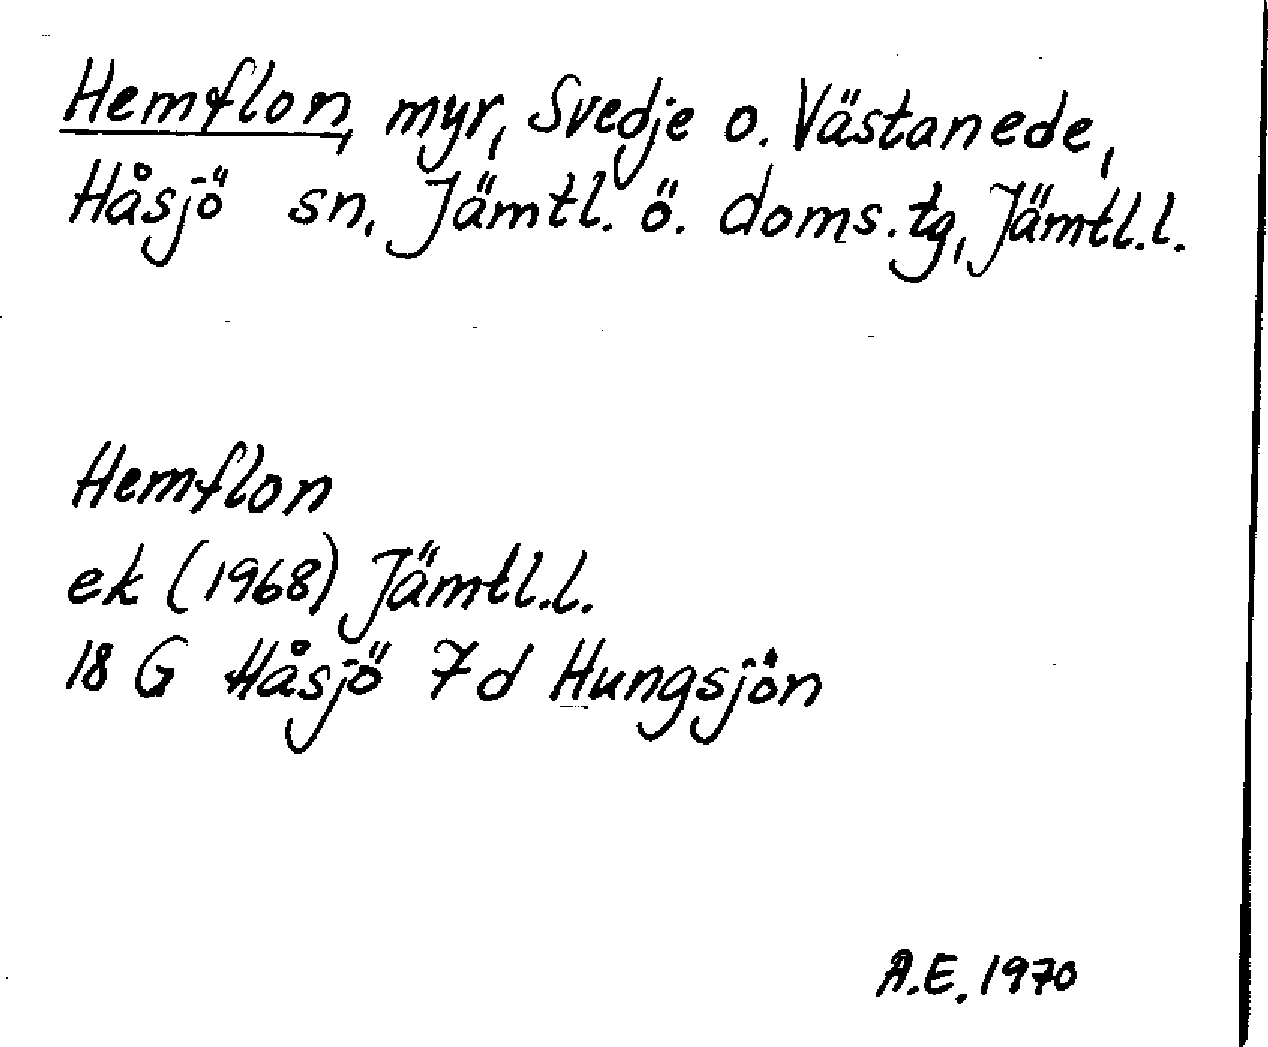 Hemflon, myr, Svedje o. Västanede,
Håsjö sn. Jämtl. ö. doms.tg, Jämtl.l.
Hemflon
ek (1968) Jämtl.l.
18 G Håsjö 7d Hungsjön
A.E. 1970